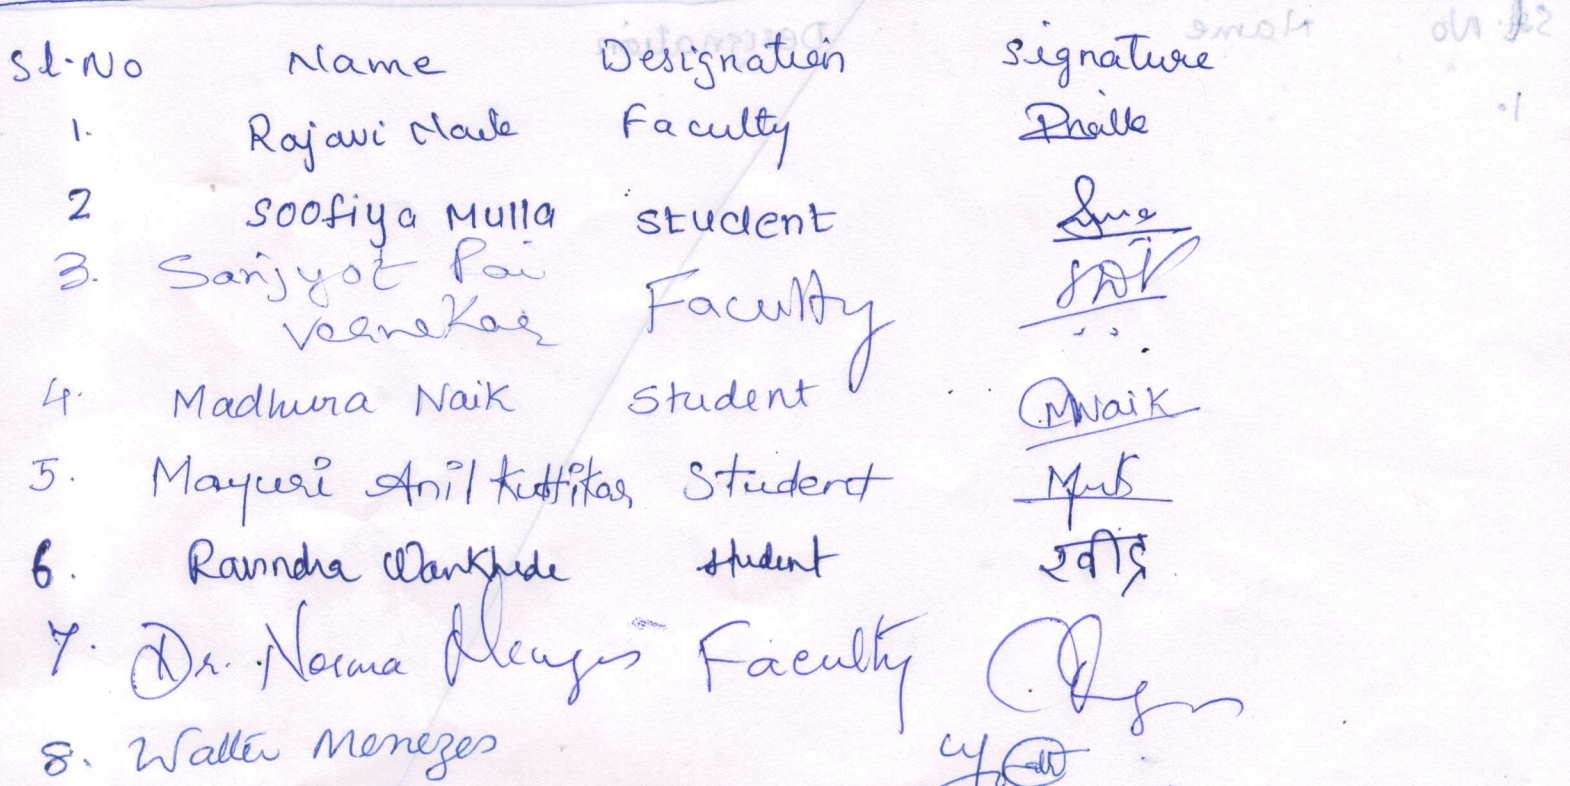 Sl.No Name Designation Signature
1. Rajavi Naik Faculty
2 Soofiya Mulla Student
3. Sanjyot Pai
Vernekar Faculty
4. Madhura Naik Student MNaik
5. Mayuri Anil Kuttikar Student
6. Ravindra Wankhede Student रवींद्र
7. Dr. Norma Menezes Faculty
8. Walter Menezes